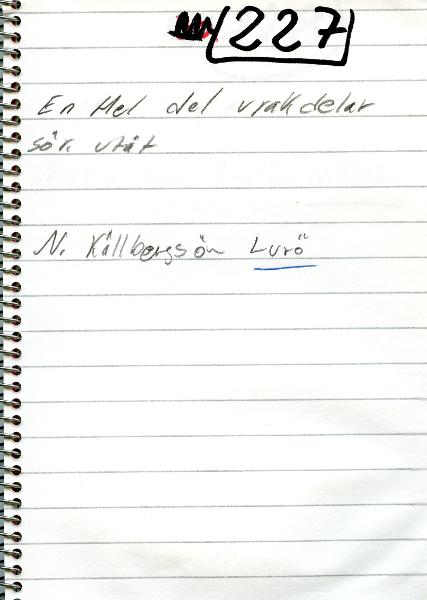 227
En Hel del vrakdelar
sör. utåt
N. Källbergsön Lurö